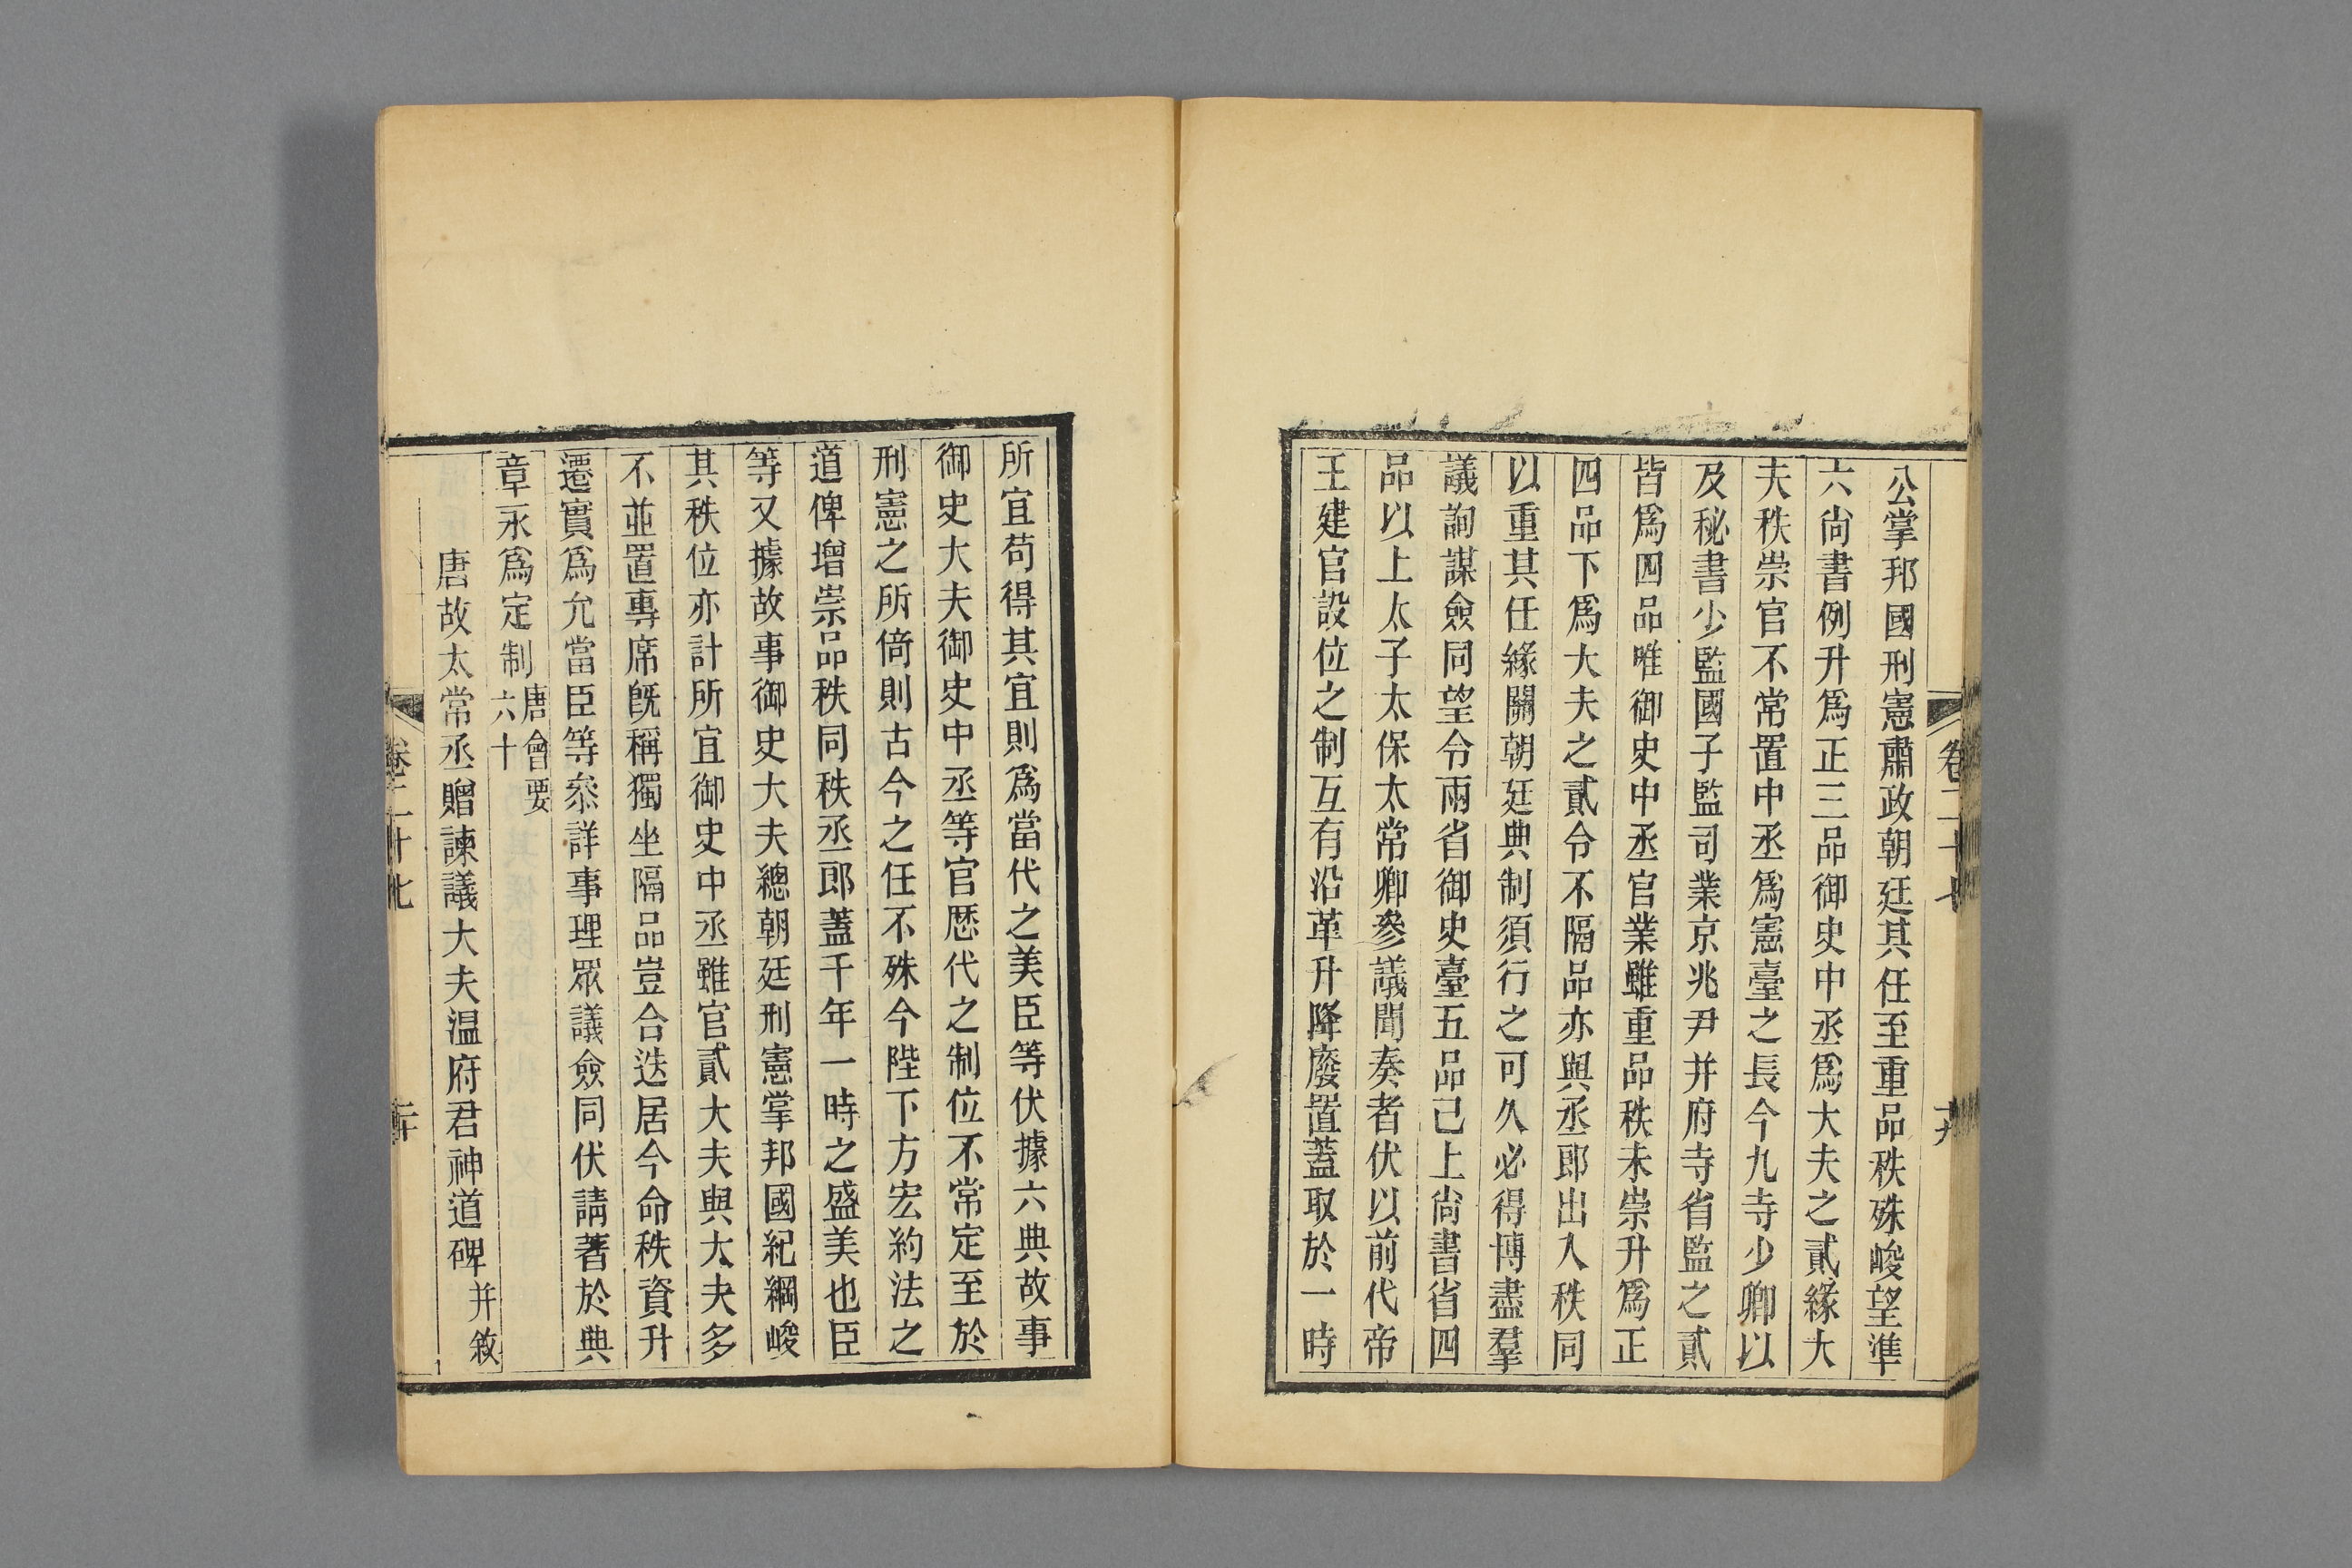 公掌邦國刑憲肅政朝廷其任至重品秩殊峻望準
六尚書例升爲正三品御史中丞爲大夫之貳緣大
夫秩崇官不常置中丞爲憲臺之長今九寺少卿以
及秘書少監國子監司業京兆尹并府寺省監之貳
皆爲四品唯御史中丞官業雖重品秩未崇升爲正
四品下爲大夫之貳令不隔品亦與丞郎出入秩同
以重其任緣關朝廷典制須行之可久必得博盡羣
議詢謀僉同望令兩省御史臺五品己上尚書省四
品以上太子太保太常卿參議聞奏者伏以前代帝
王建官設位之制互有沿革升降廢置蓋取於一時
卷二十七
十九
所宜苟得其宜則爲當代之美臣等伏據六典故事
御史大夫御史中丞等官歷代之制位不常定至於
刑憲之所倚則古今之任不殊今陛下方宏約法之
道俾增崇品秩同秩丞郎蓋千年一時之盛美也臣
等又據故事御史大夫總朝廷刑憲掌邦國紀綱峻
其秩位亦計所宜御史中丞雖官貳大夫與大夫多
不並置專席旣稱獨坐隔品豈合迭居今命秩資升
遷實爲允當臣等叅詳事理眾議僉同伏請著於典
章永爲定制唐會要六十
唐故太常丞贈諫議大夫温府君神道碑并敘
卷二十七
二十